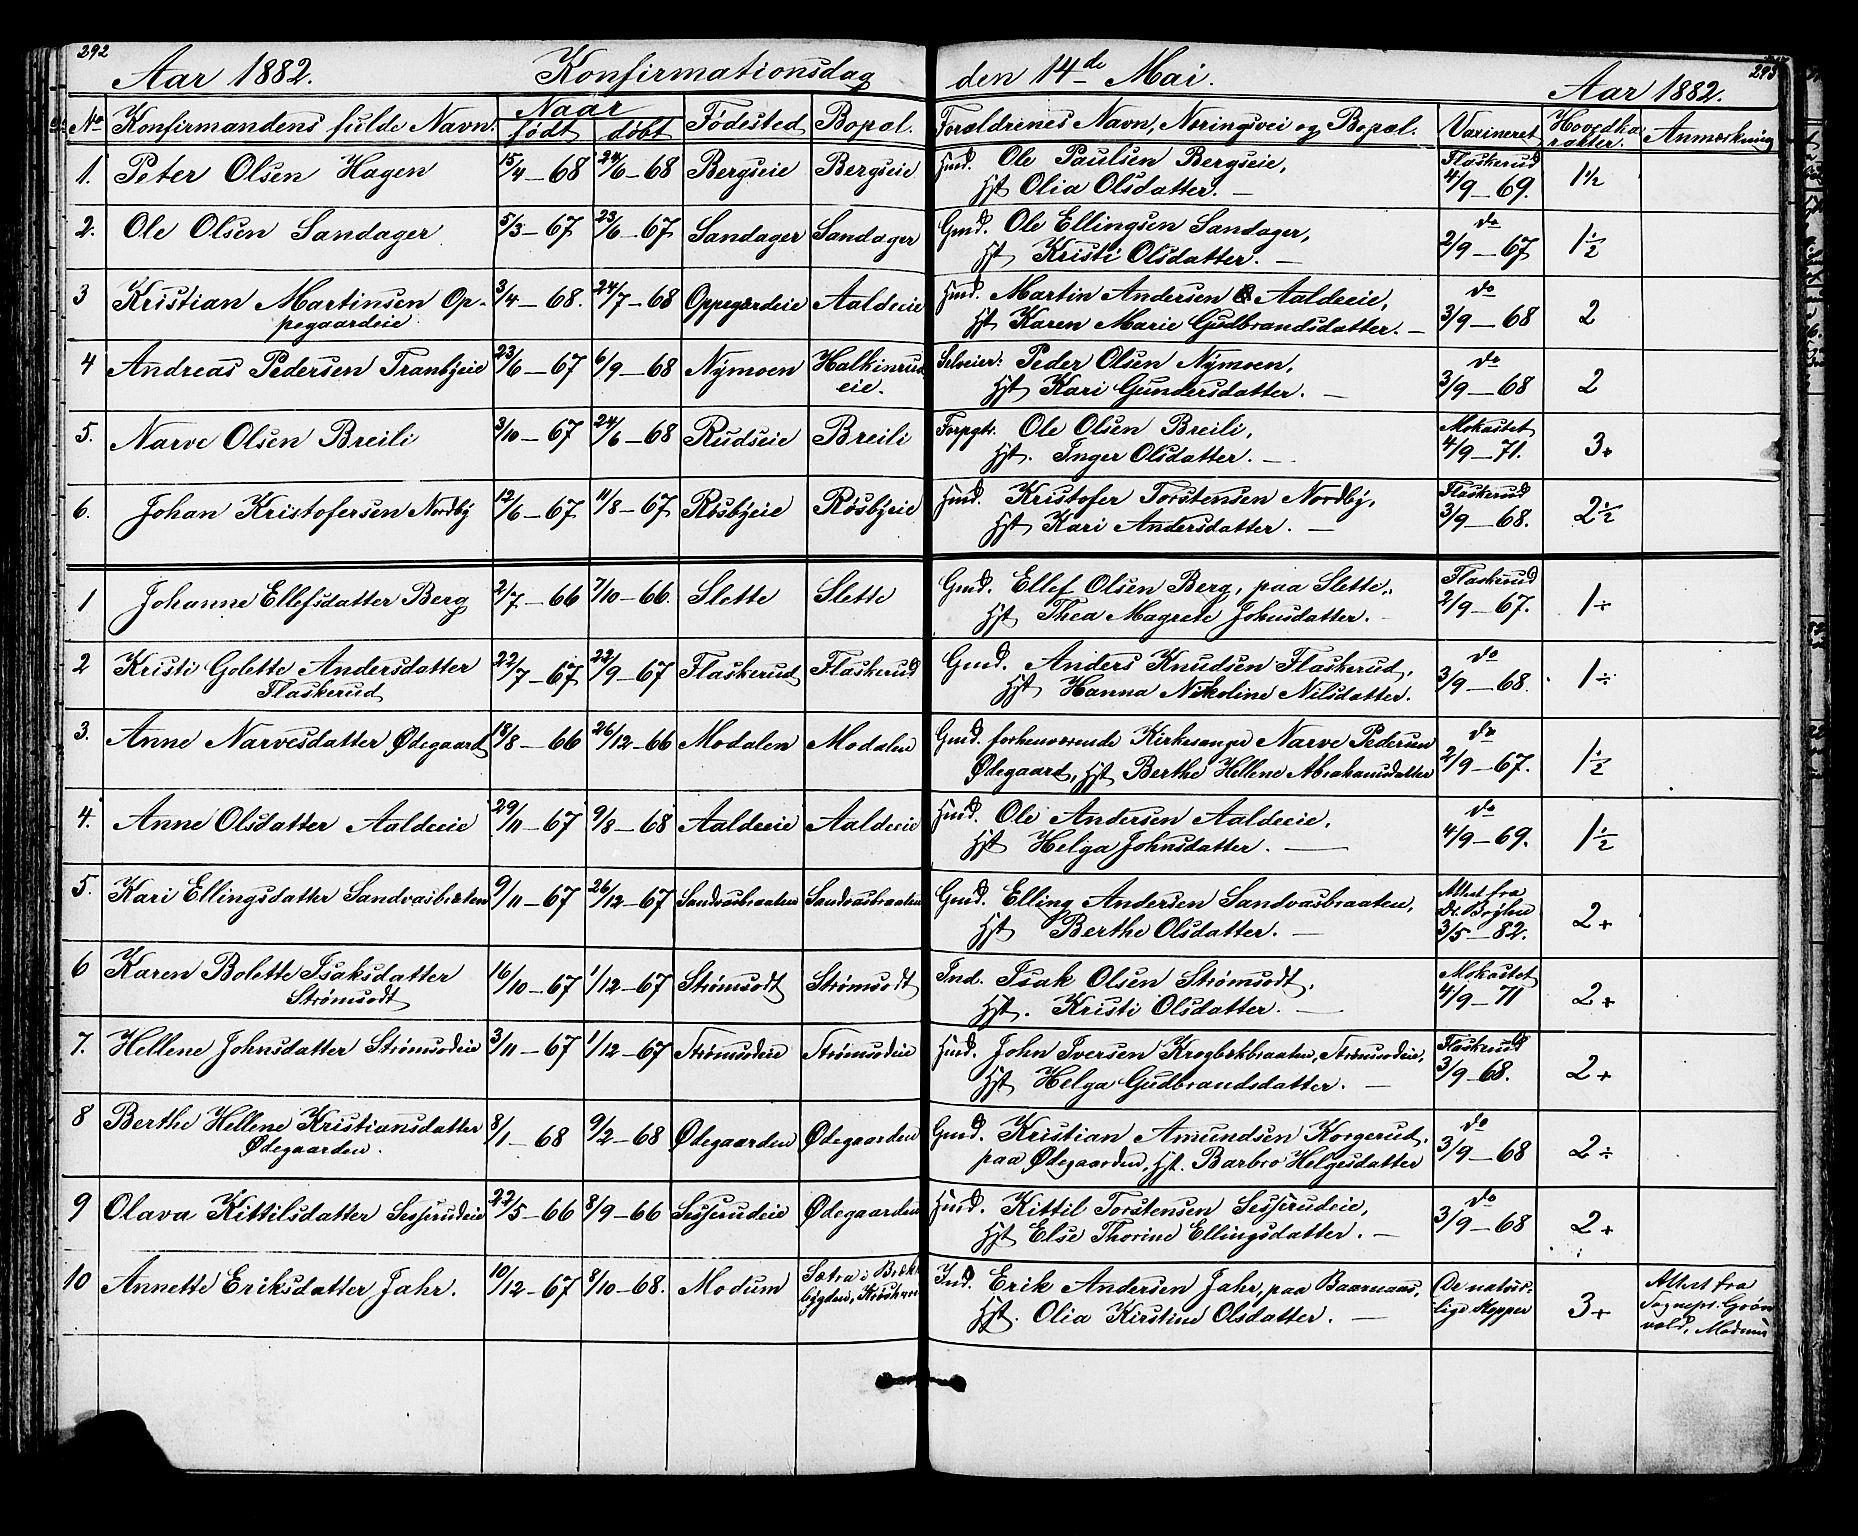 292
Aar 1882. Konfirmationsdag den 14de Mai. Aar 1882. 293
No Konfirmandens fulde Navn. Naar født døbt Fødested Bopæl. Forældrenes Navn, Næringsvei og Bopæl. Vaxineret Hovedkarakter. Anmærkning
1. Peter Olsen Hagen 15/4–68 24/6–68 Bergseie Bergseie Hmd. Ole Paulsen Bergseie, Flaskerud
Hst Olia Olsdatter. – 4/9–69. 1½
2. Ole Olsen Sandager 5/3–67 23/6–67 Sandager Sandager Gmd. Ole Ellingsen Sandager, do
Hst Kristi Olsdatter. – 2/9–67 1½
3 Kristian Martinsen Op- 3/4–68. 24/7–68 Oppegardeie Aaldeeie Hmd. Martin Andersen Aaldeeie, do
pegaardeie Hst Karen Marie Gudbrandsdatter. – 3/9–68 2
4 Andreas Pedersen Tranbyeie 23/6–67 6/9–68 Nymoen Halkinrud Selveier: Peder Olsen Nymoen, do
eie. Hst Kari Gundersdatter. – 3/9–68 2
5. Narve Olsen Breili 3/10–67 24/6–68 Rudseie Breili Forpgt. Ole Olsen Breili, Mokastet
Hst. Inger Olsdatter. – 4/9–71. 3+
6. Johan Kristofersen Nordby 12/6–67 11/8–67 Røsbyeie Røsbyeie Hmd. Kristofer Torstensen Nordby, Flaskerud
Hst Kari Andersdatter. – 3/9–68. 2½
1 Johanne Ellefsdatter Berg 2/7–66 7/10–66. Slette Slette Gmd. Ellef Olsen Berg, paa Slette, Flaskerud
Hst Thea Magrete Johnsdatter. 2/9–67. 1÷
2 Kristi Golette Andersdatter 22/7–67 22/9–67 Flaskerud Flaskerud Gmd. Anders Knudsen Flaskerud, do
Flaskerud Hst Hanna Nikoline Nilsdatter. 3/9–68. 1÷
3. Anne Narvesdatter Ødegaard 18/8–66 26/12–66 Modalen Modalen Gmd. forhenværende Kirkesanger Narve Pedersen do
Ødegaard, Hst Berthe Hellene Abrahamsdatter 2/9–67. 1½
4. Anne Olsdatter Aaldeeie 29/11–67 9/8–68 Aaldeeie Aaldeeie Hmd. Ole Andersen Aaldeeie, do
Hst Helga Johnsdatter. – 4/9–69. 1½
5. Kari Ellingsdatter Sandvasbråten 9/11–67 26/12–67 Sandvasbraaten Sandvasbraaten Gmd. Elling Andersen Sandvasbraaten, Attest fra
Hst Berthe Olsdatter. – 3/5–82. 2+
6 Karen Bolette Isaksdatter 16/10–67 1/12–67 Strømsodt Strømsodt Ind. Isak Olsen Strømsodt, Mokastet
Strømsodt Hst. Kristi Olsdatter. – 4/9–71 2+
7. Hellene Johnsdatter Strømsodeie 3/11–67 1/12–67 Strømsodeie Strømsodeie Hmd. John Iversen Krogbækbraaten, Strømsodeie, Flaskerud
Hst Helga Gudbrandsdatter. – 3/9–68. 2+
8 Berthe Hellene Kristiansdatter 8/1–68 9/2–68 Ødegaarden Ødegaarden Gmd. Kristian Amundsen Korgerud, do
Ødegaarden. paa Ødegaarden, Hst. Barbro Helgesdatter 3/9–68 2÷
9 Olava Kittilsdatter Sesserudeie 22/5–66 8/9–66 Sesserudeie Ødegaarden Hmd. Kittil Torstensen Sesserudeie, do
Hst Else Thorine Ellingsdatter. – 3/9–68 2+
10 Annette Eriksdatter Jahr. 10/12–67 8/10–68. Modum Sætra i Ind. Erik Andersen Jahr, paa De naturs- Attest fra
bygden, Hst. Olia Kirstine Olsdatter. – lige Kopper 3+ Sognepr. Grøn
vold, Modum